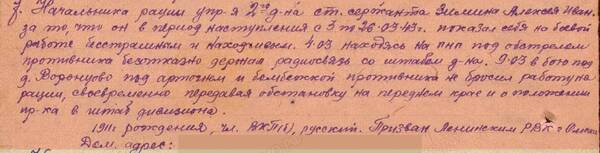 7. Начальника рации упр-я 2го д-на ст. сержанта Зимина Алексея Иван.
за то, что он в период наступления с 3 по 26.03.43 г. показал себя на боевой
работе бесстрашным и находчивым. 4.03 находясь на ПНП под обстрелом
противника безотказно держал радиосвязь со штабом д-на. 9.03 в бою под
д. под артогнем и бомбежкой противника не бросил работу на
рации, своевременно передавая обстановку на переднем крае и о положении
пр-ка в штаб дивизиона.
1911 рождения, чл. ВКП(б), русский. Призван Ленинским РВК г. Омска
Дом. адрес: